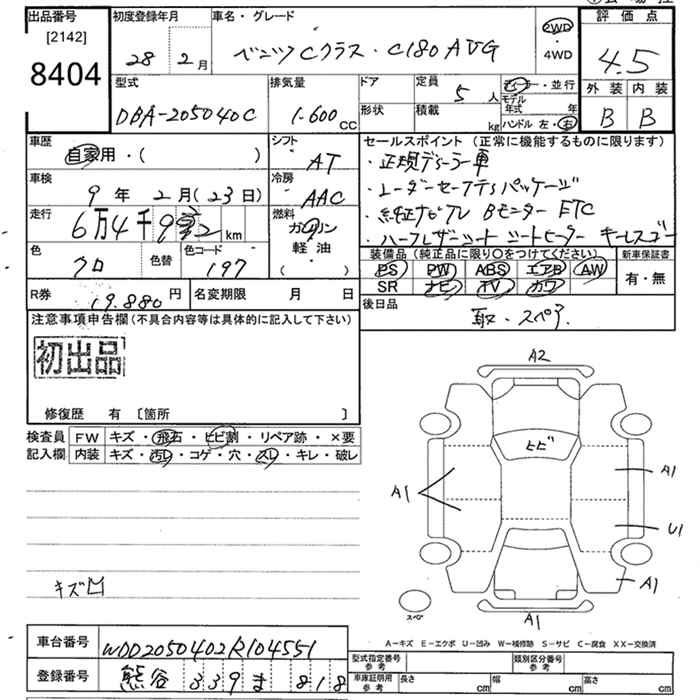 出品番号 初度登録年月 車名・グレード 2WD・4WD 評価点
[2142]
8404 28年 2月 ベンツCクラス・C180 AVG 4.5
型式 排気量 ドア 定員 5人 ディーラー・並行 外装 内装
DBA-205040C 1.600cc 形状 積載 kg モデル年式 年 ハンドル 左・右 B B
車歴 自家用・( ) シフト AT セールスポイント (正常に機能するものに限ります)
・正規ディーラー車
車検 9年 2月(23日) 冷房 AAC ・レーダーセーフティパッケージ
走行 6万4千9 2km 燃料 ガソリン 軽油 ( ) ・純正ナビTV Bモニター ETC
・ハーフレザーシート シートヒーター キーレスゴー
色 クロ 色替 色コード 197 装備品 (純正品に限り○をつけてください) 新車保証書
PS PW ABS エアB AW 有・無
SR ナビ TV カワ
R券 19.880円 名変期限 月 日 後日品
取・スペア
注意事項申告欄(不具合内容等は具体的に記入して下さい)
初出品
修復歴 有 [箇所 ]
検査員記入欄 FW キズ・飛石・ヒビ割・リペア跡・×要
内装 キズ・汚レ・コゲ・穴・スレ・キレ・破レ
A2
ヒビ
A1
A1
U1
A1
キズ凹
スペア
A1
A-キズ E-エクボ U-凹み W-補修跡 S-サビ C-腐食 XX-交換済
車台番号 WDD2050402R104551
型式指定番号 参考 類別区分番号 参考
登録番号 熊谷 339 ま 818
車庫証明用 参考 長さ cm 幅 cm 高さ cm